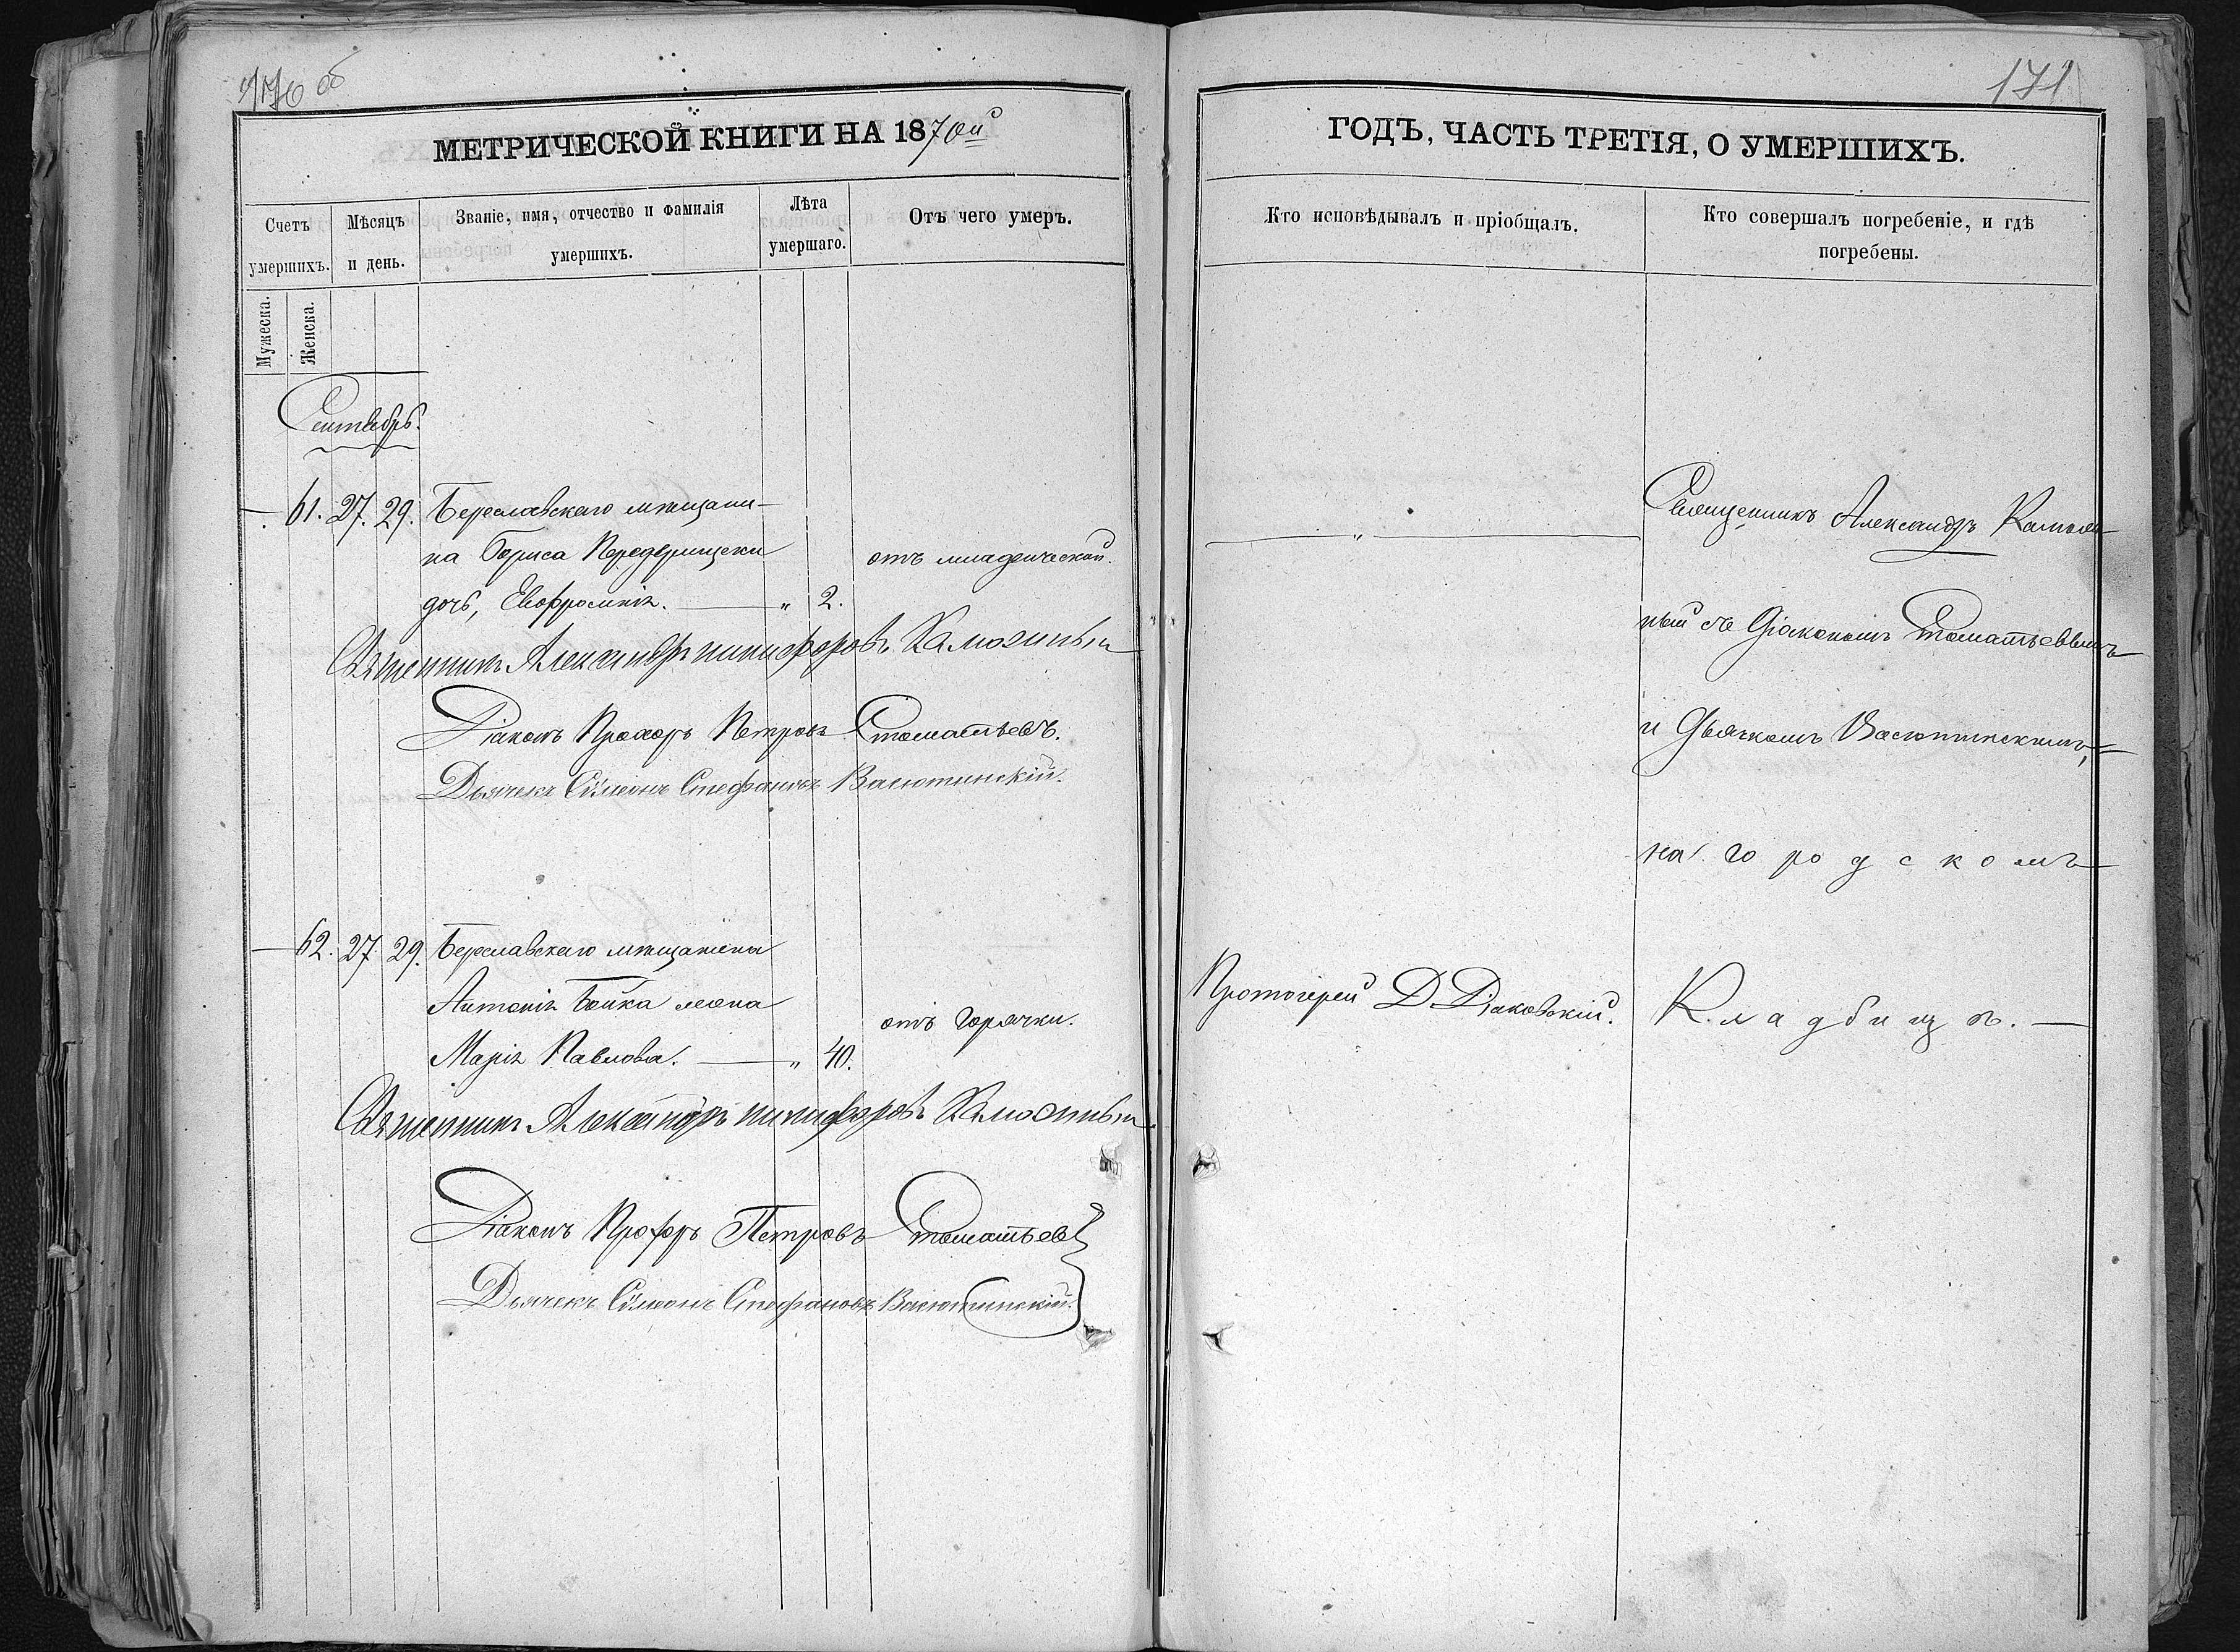 170 об
171
МЕТРИЧЕСКОЙ КНИГИ НА 1870й
ГОДЪ, ЧАСТЬ ТРЕТІЯ, О УМЕРШИХЪ.
Счетъ умершихъ.
Мѣсяцъ и день.
Званіе, имя, отчество и фамилія умершихъ.
Лѣта умершаго.
Отъ чего умеръ.
Кто исповѣдывалъ и пріобщалъ.
Кто совершалъ погребеніе, и гдѣ погребены.
Мужеска.
Женска.
Сентябрь.
— 61. 27. 29. Береславскаго мѣщани-
на Бориса
дочь, Евфросинія. — " 2.
отъ младенческой.
Священникъ Александръ Никифоровъ
Діаконъ Прохоръ Петровъ Стоматьевъ.
Дьячекъ Сѵмеонъ Стефановъ Васютинскій.
— 62. 27. 29. Береславскаго мѣщанина
Антонія Бойка жена
Марія Павлова. — " 40.
отъ горячки.
Священникъ Александръ Никифоровъ
Діаконъ Прохоръ Петровъ Стоматьевъ
Дьячекъ Сѵмеонъ Стефановъ Васютинскій.
— " —
Протоіерей Д. Діаковскій.
Священникъ Александръ
ный съ Діакономъ Стоматьевымъ
и Дьячкомъ Васютинскимъ,
на городскомъ
Кладбищѣ. —